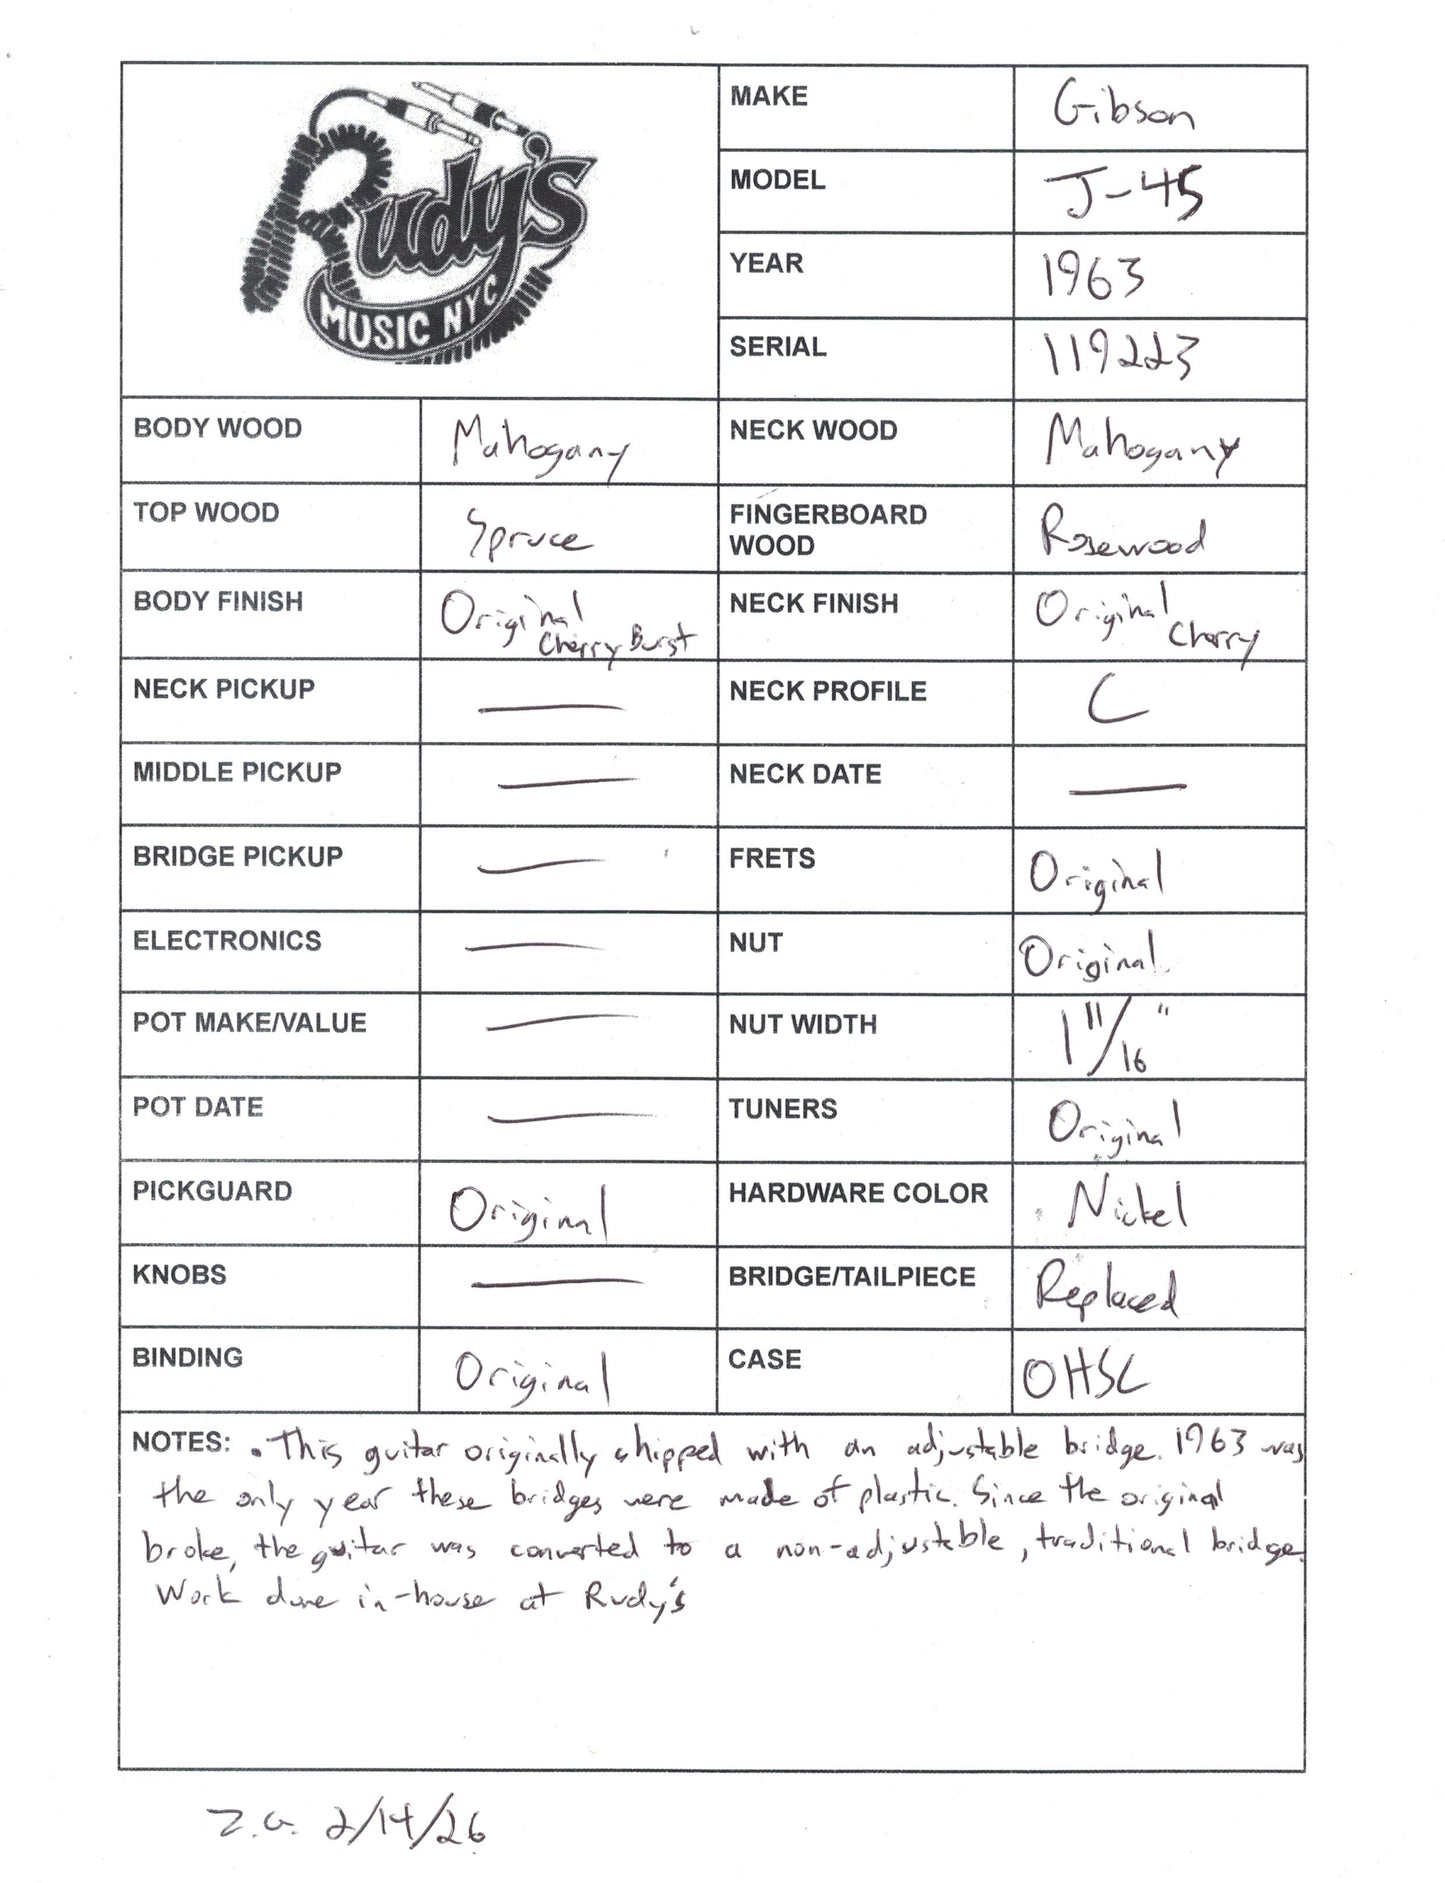 Rudy's
MUSIC NYC
MAKE Gibson
MODEL J-45
YEAR 1963
SERIAL 119223
BODY WOOD Mahogany NECK WOOD Mahogany
TOP WOOD Spruce FINGERBOARD WOOD Rosewood
BODY FINISH Original Cherry Burst NECK FINISH Original Cherry
NECK PICKUP — NECK PROFILE C
MIDDLE PICKUP — NECK DATE —
BRIDGE PICKUP — FRETS Original
ELECTRONICS — NUT Original
POT MAKE/VALUE — NUT WIDTH 1 11/16"
POT DATE — TUNERS Original
PICKGUARD Original HARDWARE COLOR Nickel
KNOBS — BRIDGE/TAILPIECE Replaced
BINDING Original CASE OHSC
NOTES: • This guitar originally shipped with an adjustable bridge. 1963 was
the only year these bridges were made of plastic. Since the original
broke, the guitar was converted to a non-adjustable, traditional bridge.
Work done in-house at Rudy's
Z.G. 2/14/26